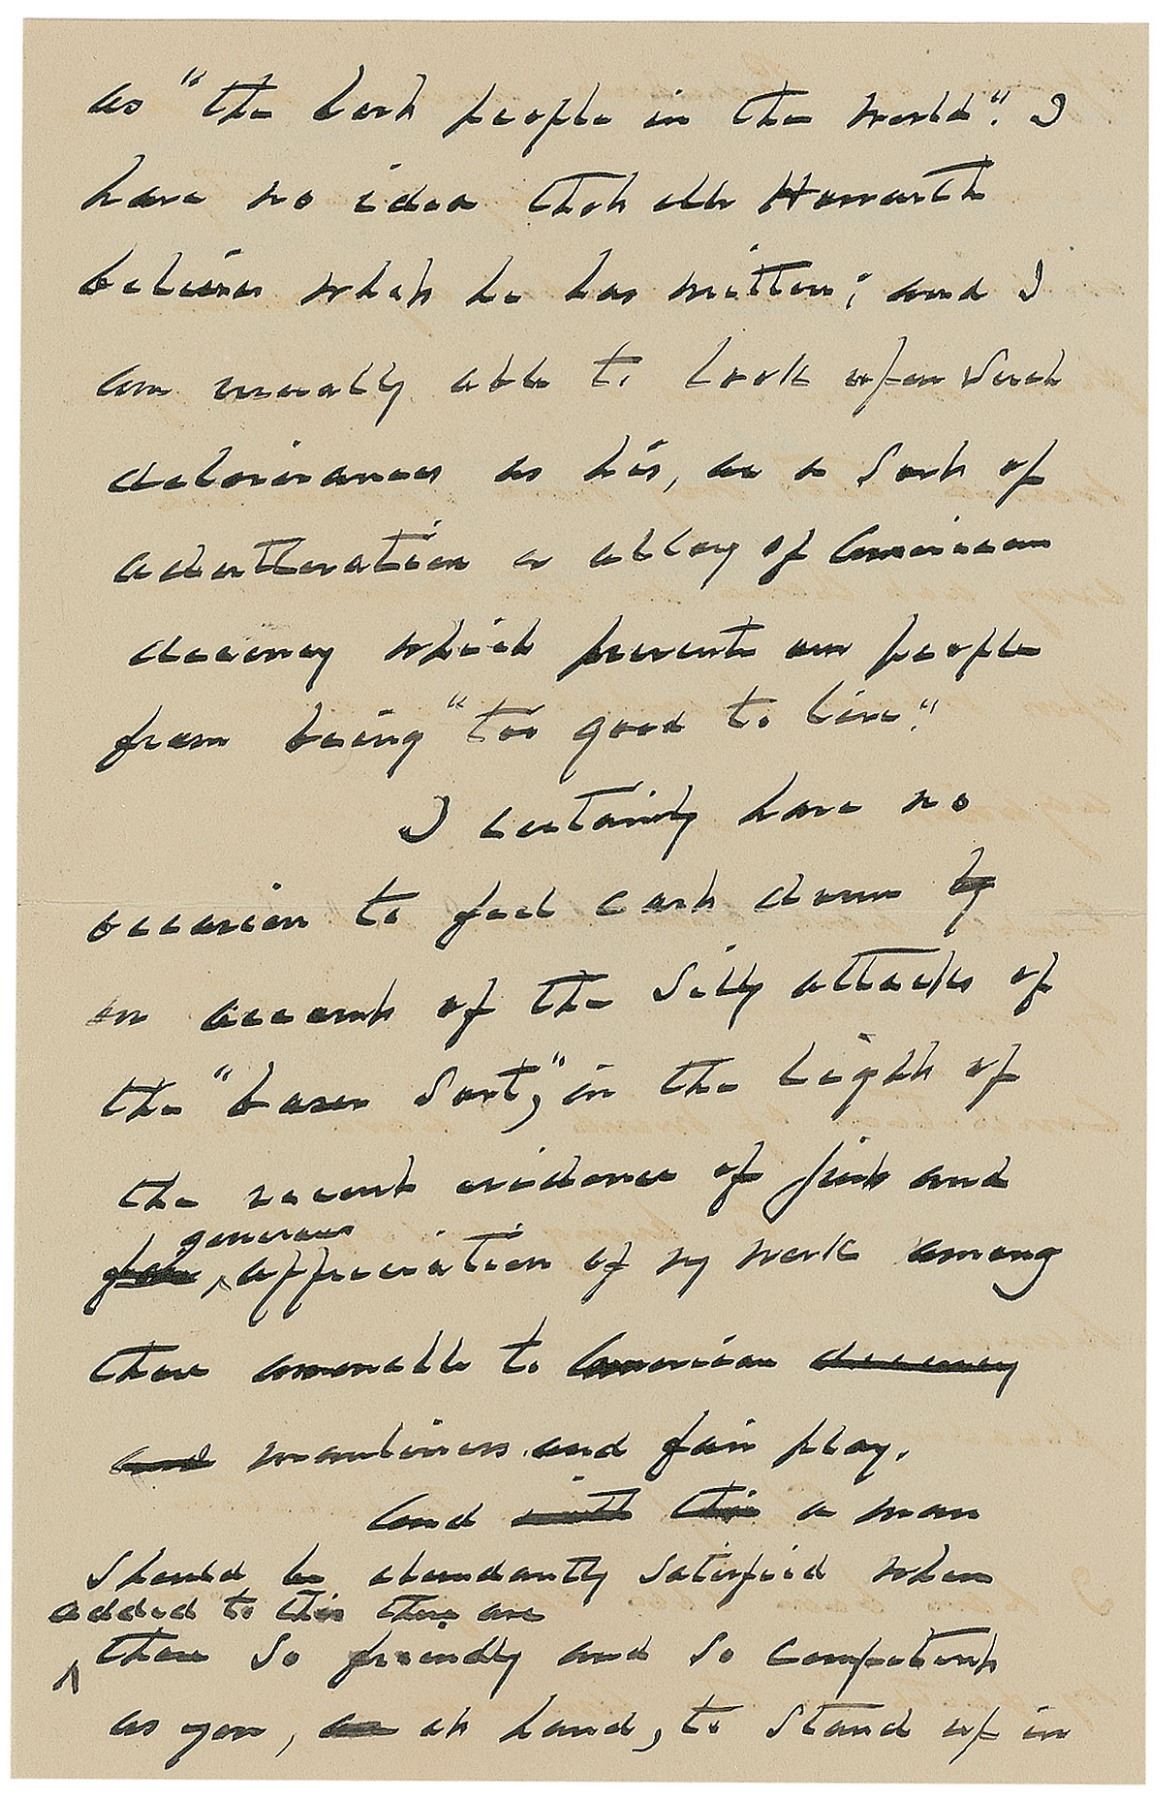 as "the best people in the world". I
have no idea that Mr Howarth
believes what he has written; and I
am usually able to look upon such
deliverances as his, as a sort of
adulteration or alloy of American
decency which prevents our people
from being "too good to live."
I certainly have no
occasion to feel cast down by
on account of the silly attacks of
the "baser sort," in the light of
the recent evidence of just and
generous
appreciation of my work among
those amenable to American decency
and manliness and fair play.
And with this a man
should be abundantly satisfied when
added to this there are
those so friendly and so competent
as you, as at hand, to stand up in